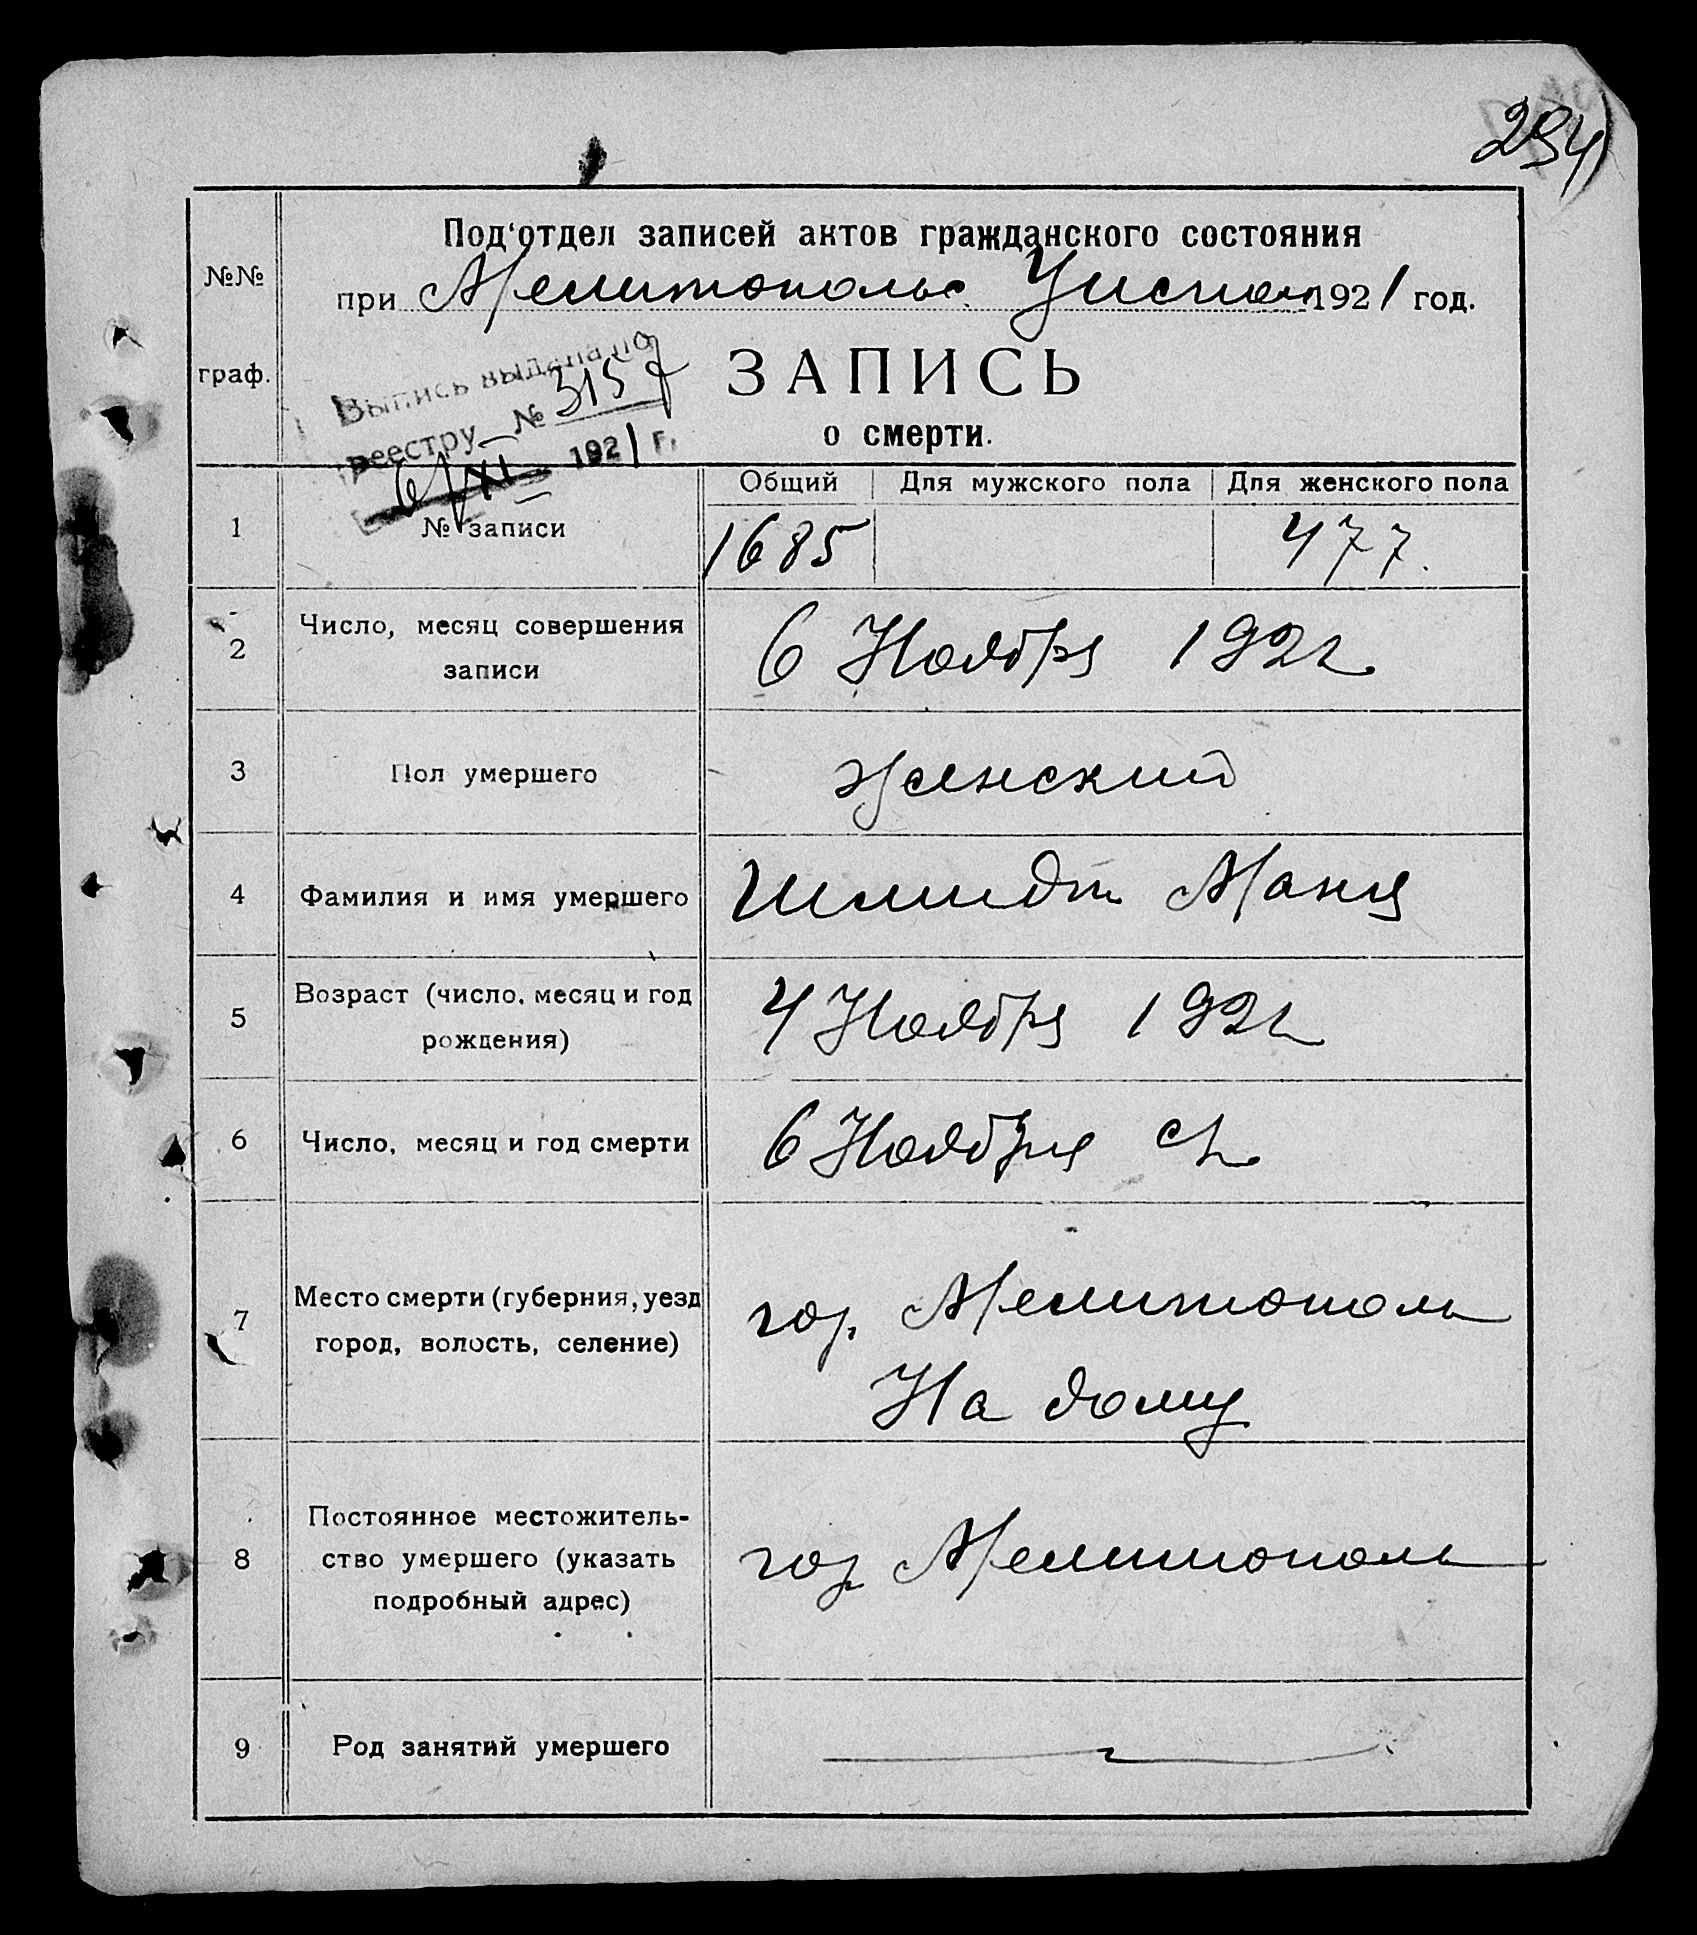 234
Под'отдел записей актов гражданского состояния
№№
при Мелитопольс. Уиспол 1921 год.
Выпись выдана по
реестру № 3157
6/XI 1921 г.
ЗАПИСЬ
граф.
о смерти.
Общий Для мужского пола Для женского пола
1 № записи 1685 477.
2 Число, месяц совершения записи
6 Ноября 1921
3 Пол умершего женский
4 Фамилия и имя умершего Шмидт Маня
5 Возраст (число, месяц и год рождения)
4 Ноября 1921
6 Число, месяц и год смерти 6 Ноября
7 Место смерти (губерния, уезд город, волость, селение)
гор. Мелитополь
На дому
8 Постоянное местожитель-
ство умершего (указать
подробный адрес)
гор Мелитополь
9 Род занятий умершего